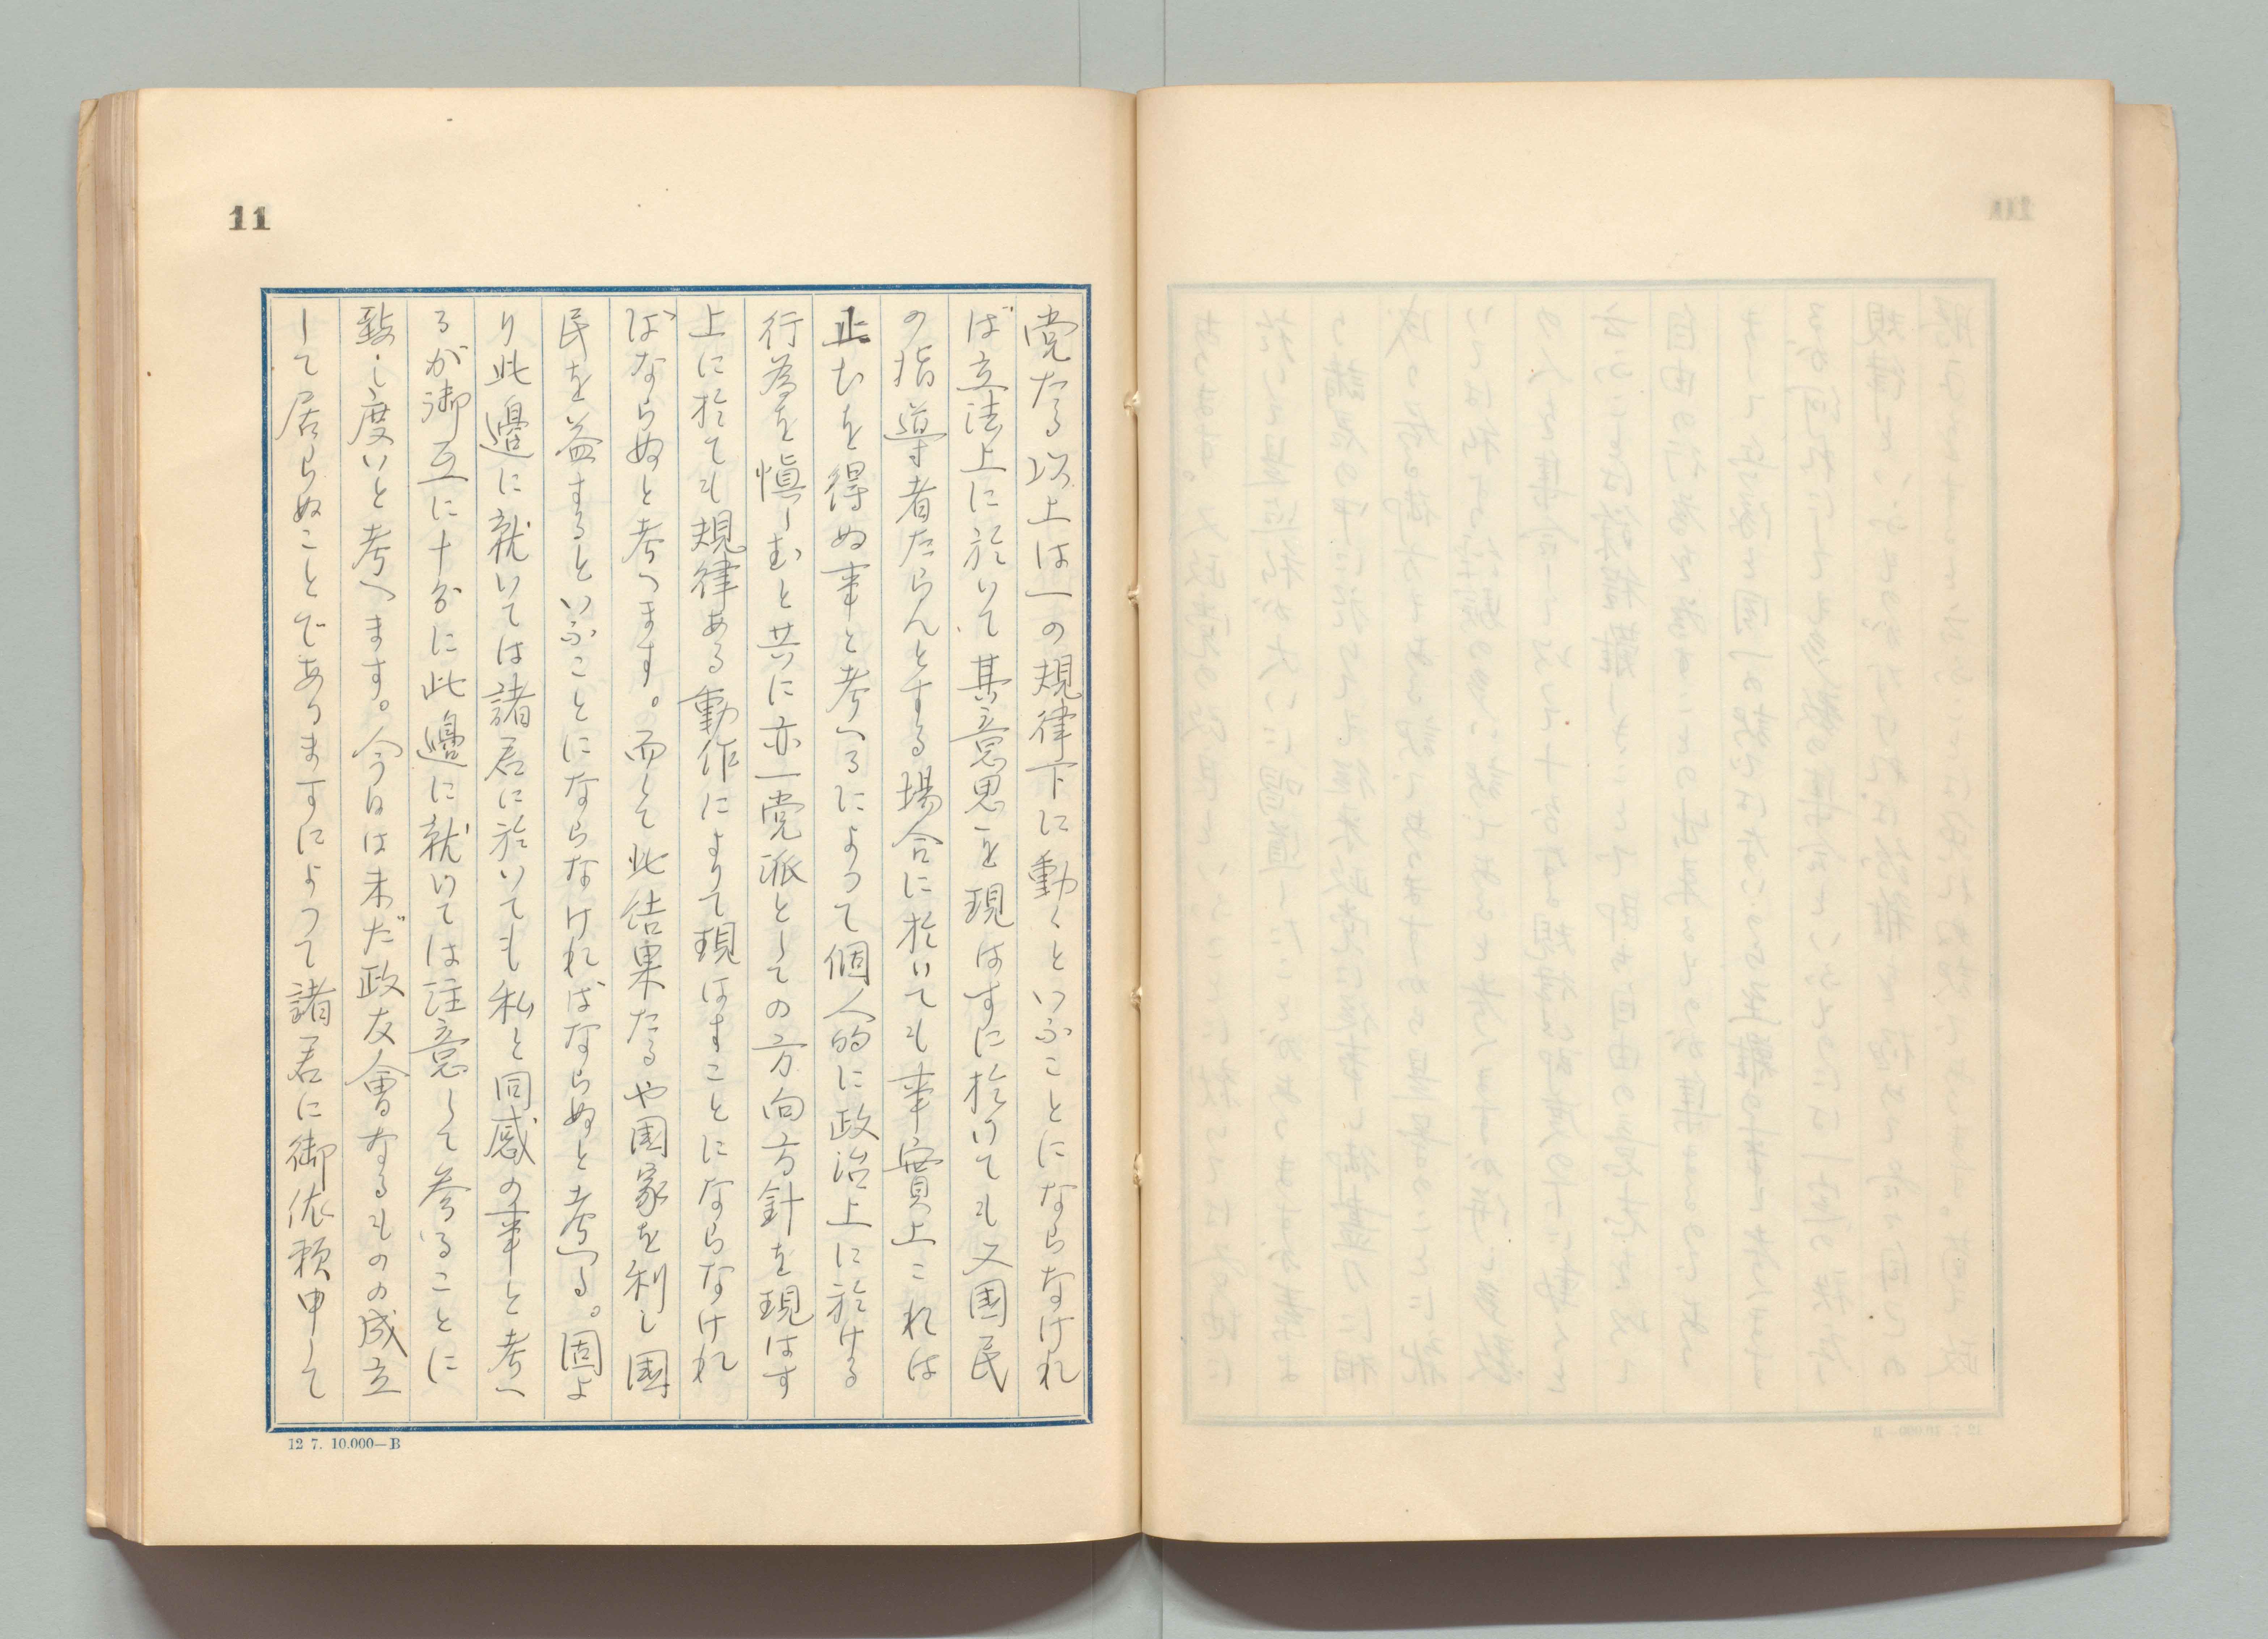 11
党たる以上は一の規律下に動くといふことにならなけれ
ば立法上に於いて其意思を現はすに於いても又国民
の指導者たらんとする場合に於いても事實上これは
止むを得ぬ事と考へるによつて個人的に政治上に於ける
行為を慎しむと共に亦一党派としての方向方針を現はす
上に於ても規律ある動作によりて現はすことにならなけれ
ばならぬと考へます。而して此結果たるや国家を利し国
民を益するといふことにならなければならぬと考へる。固よ
り此邊に就いては諸君に於いても私と同感の事と考へ
るが御互に十分に此邊に就いては注意して参ることに
致し度いと考へます。今日は未だ政友會なるものの成立
して居らぬことでありますによつて諸君に御依頼申して
12 7. 10.000—B